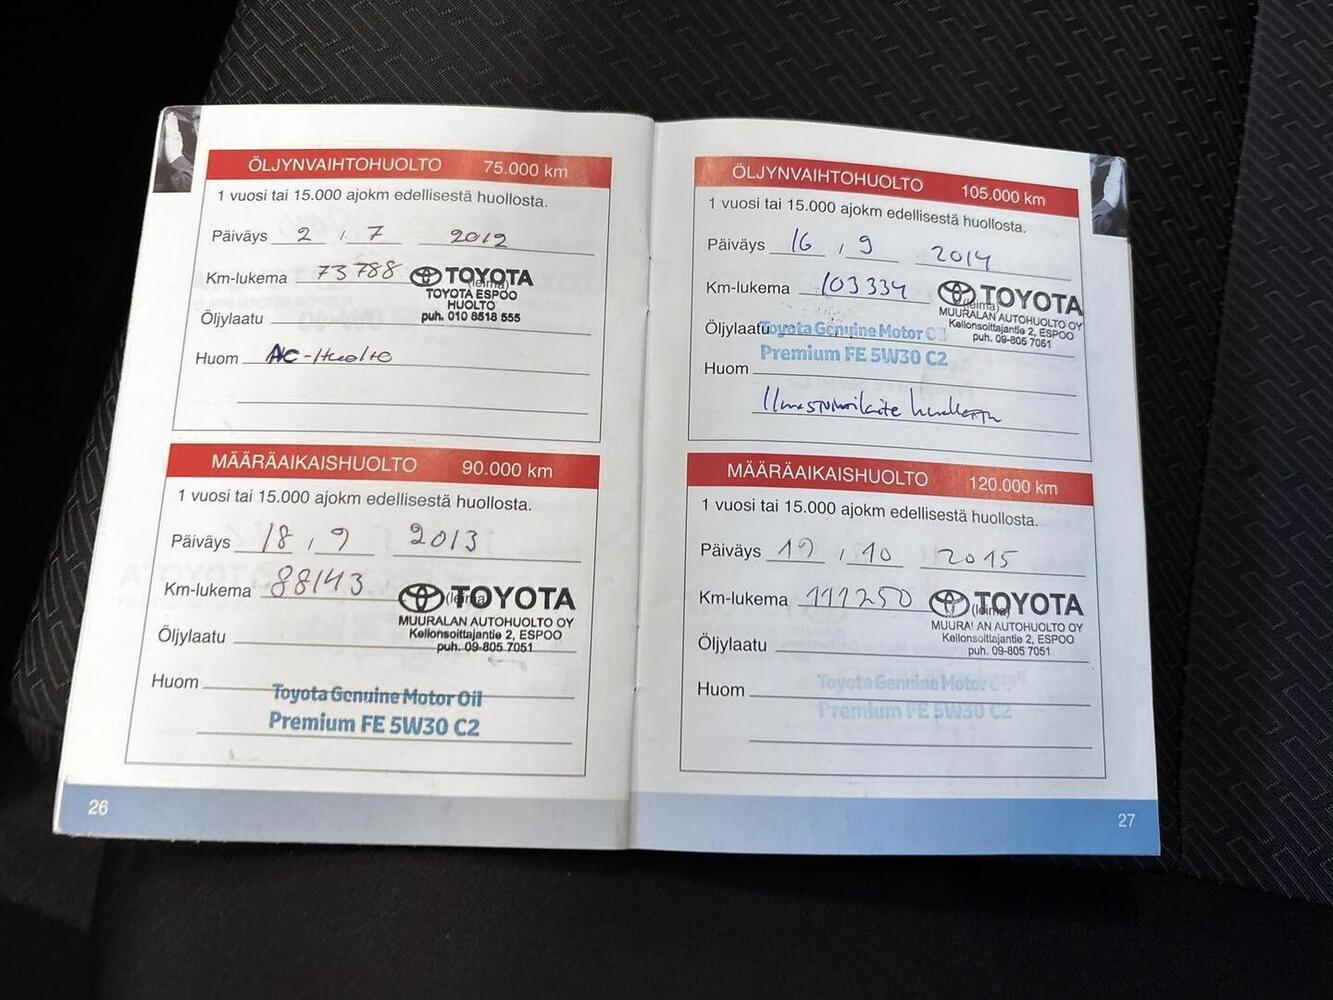 ÖLJYNVAIHTOHUOLTO 75.000 km
1 vuosi tai 15.000 ajokm edellisestä huollosta.
Päiväys 2 , 7 2012
Km-lukema 73788
TOYOTA
(leima)
TOYOTA ESPOO
HUOLTO
puh. 010 8518 555
Öljylaatu
Huom AC-Huolto
MÄÄRÄAIKAISHUOLTO 90.000 km
1 vuosi tai 15.000 ajokm edellisestä huollosta.
Päiväys 18 , 9 2013
Km-lukema 88143
TOYOTA
(leima)
MUURALAN AUTOHUOLTO OY
Kellonsoittajantie 2, ESPOO
puh. 09-805 7051
Öljylaatu
Huom
Toyota Genuine Motor Oil
Premium FE 5W30 C2
26
ÖLJYNVAIHTOHUOLTO 105.000 km
1 vuosi tai 15.000 ajokm edellisestä huollosta.
Päiväys 16 , 9 2014
Km-lukema 103334
TOYOTA
(leima)
MUURALAN AUTOHUOLTO OY
Kellonsoittajantie 2, ESPOO
puh. 09-805 7051
Öljylaatu Toyota Genuine Motor Oil
Premium FE 5W30 C2
Huom
Ilmastointilaite huollettu
MÄÄRÄAIKAISHUOLTO 120.000 km
1 vuosi tai 15.000 ajokm edellisestä huollosta.
Päiväys 19 , 10 2015
Km-lukema 111250
TOYOTA
(leima)
MUURALAN AUTOHUOLTO OY
Kellonsoittajantie 2, ESPOO
puh. 09-805 7051
Öljylaatu
Huom
Toyota Genuine Motor
Premium FE 5W30 C2
27